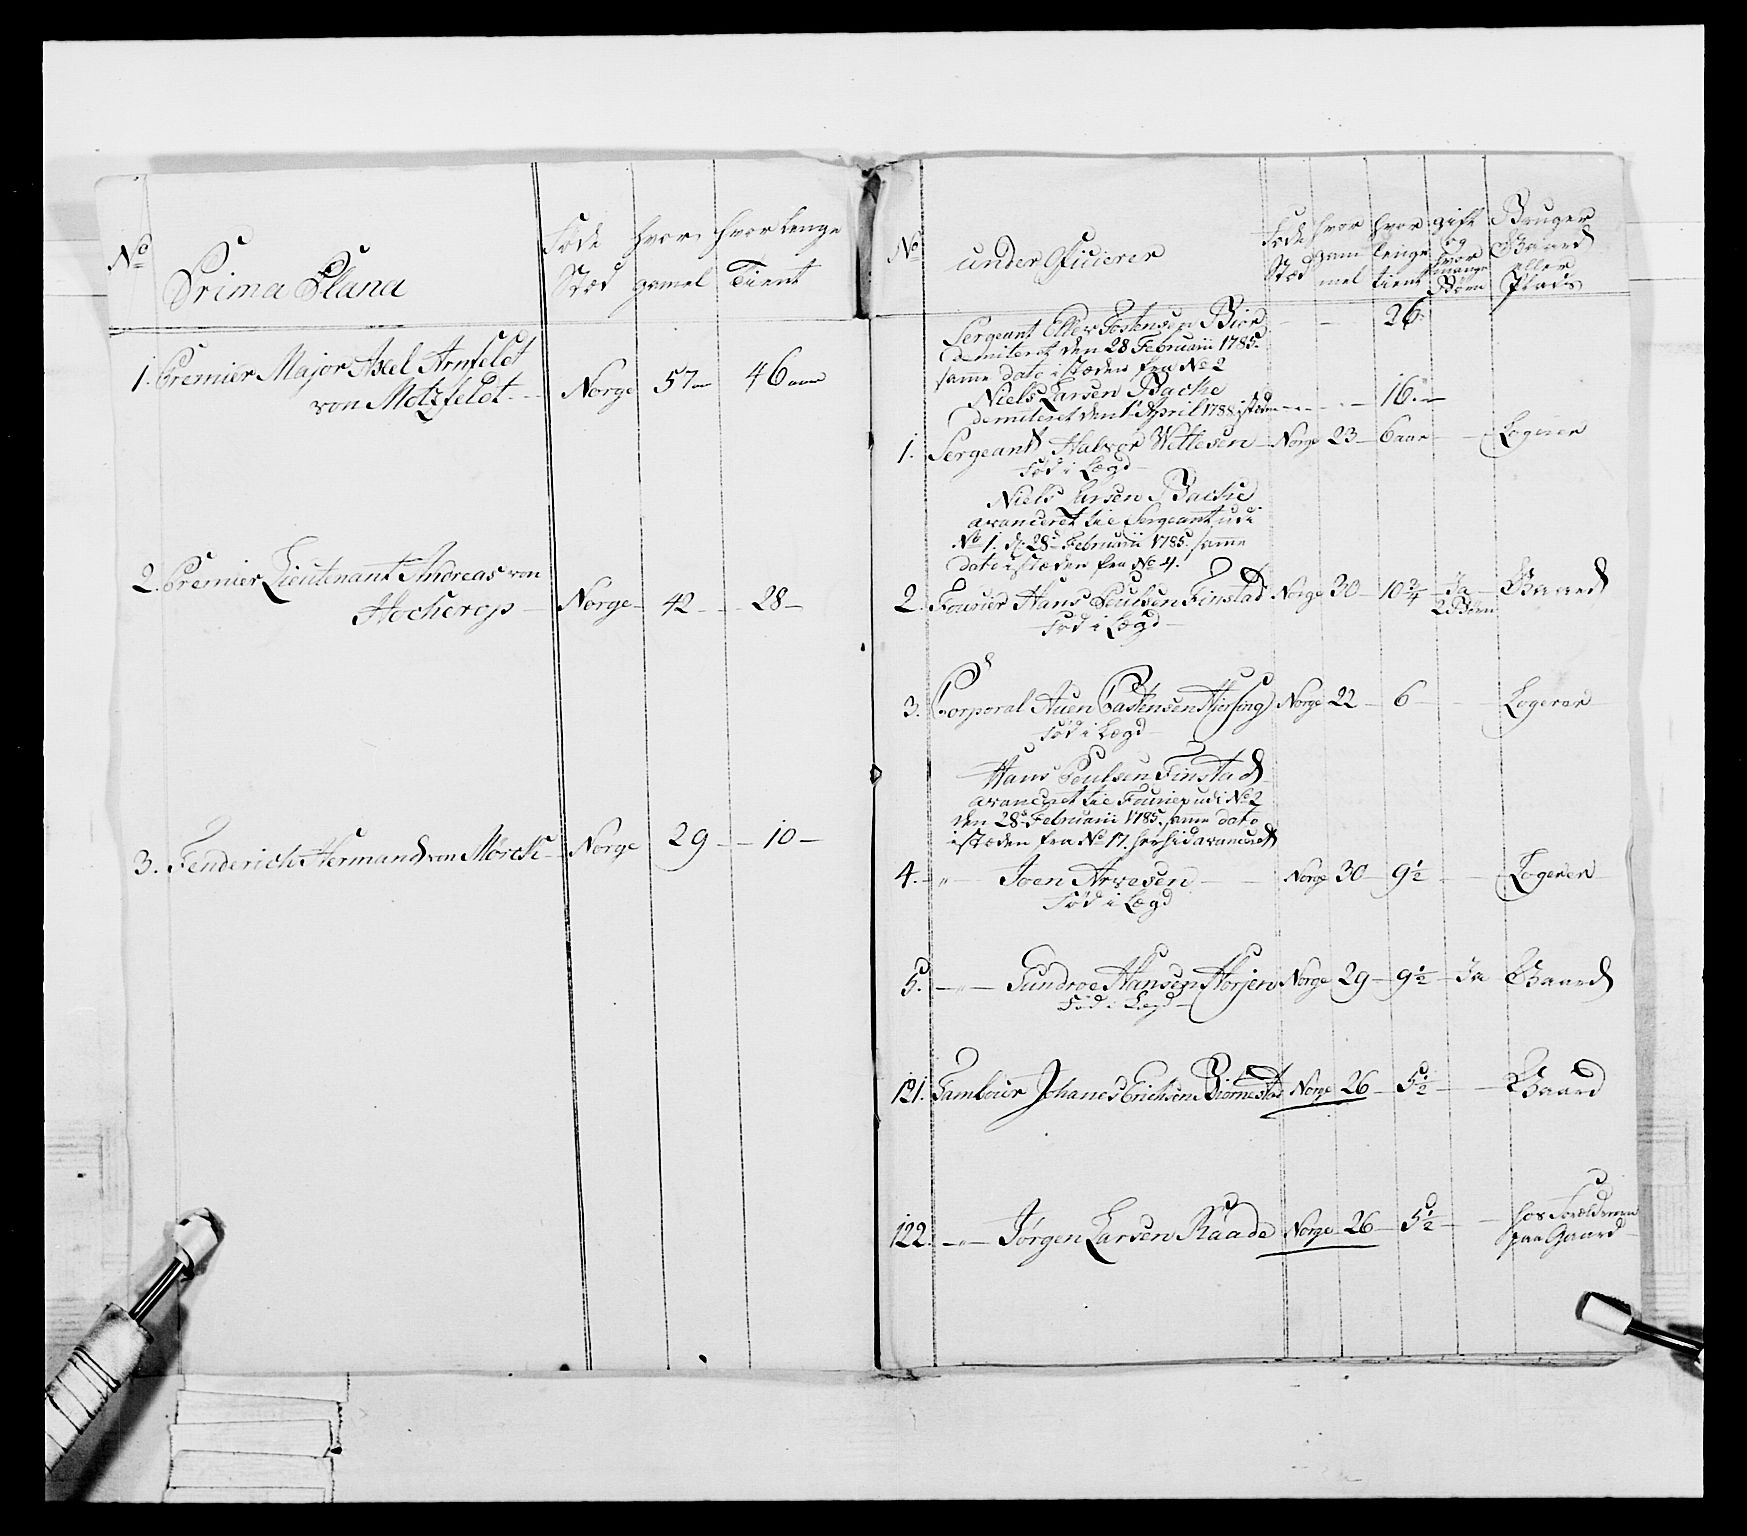 No
Prima Plana
Føde Stæd
hvor gamel
hvor lenge Tient
1. Premier Major Axel Arnfeldt
von Motzfeldt - Norge 57 46 aar
2. Premier Lieutenant Andreas von
Norge 42 28
3. Fenderich Hermand von Morck Norge 29 10
No
under Officierer
Føde Stæd
hvor gam mel
hvor lenge tient
gift og hvor mange Børn
Bruger Gaard eller Plads
Sergeant Tostensen Bior - - 26
demiteret den 28 Februarii 1785
samme dato i stæden fra No 2
Niels Larsen Backe
demiteret den 1 April 1788 istæden - - 16
1. Sergeant Halvor Wettesen Norge 23 6 aar - Logerer
Fød i Lægd
Niels Larsen Backe
avanceret til Sergeant udi
No 1. d. 28 Februarii 1785. samme
dato istæden fra No 4.
2. Fourier Hans Poulsen Finstad Norge 30 10 3/4 Ja Gaard
2 Børn
Fød i Lægd
3. Corporal Auen Castensen Norge 22 6 - Logerer
Fød i Lægd
Hans Poulsen Finstad
avanceret til Fourier udi No 2
den 28 Februarii 1785. samme dato
istæden fra No 17. herhid avanceret
4. - " - Joen Arvesen - Norge 30 9 1/2 - Logerer
Fød i Lægd
5. - " - Gundroe Hansen Horjen Norge 29 9 1/2 Ja Gaard
Fød i Lægd
121. Tambour Johanes Erichsen Biørnestad Norge 26 5 1/2 - Gaard
122. - " - Jørgen Larsen Raade Norge 26 5 1/2 - hos Forældrene
paa Gaard